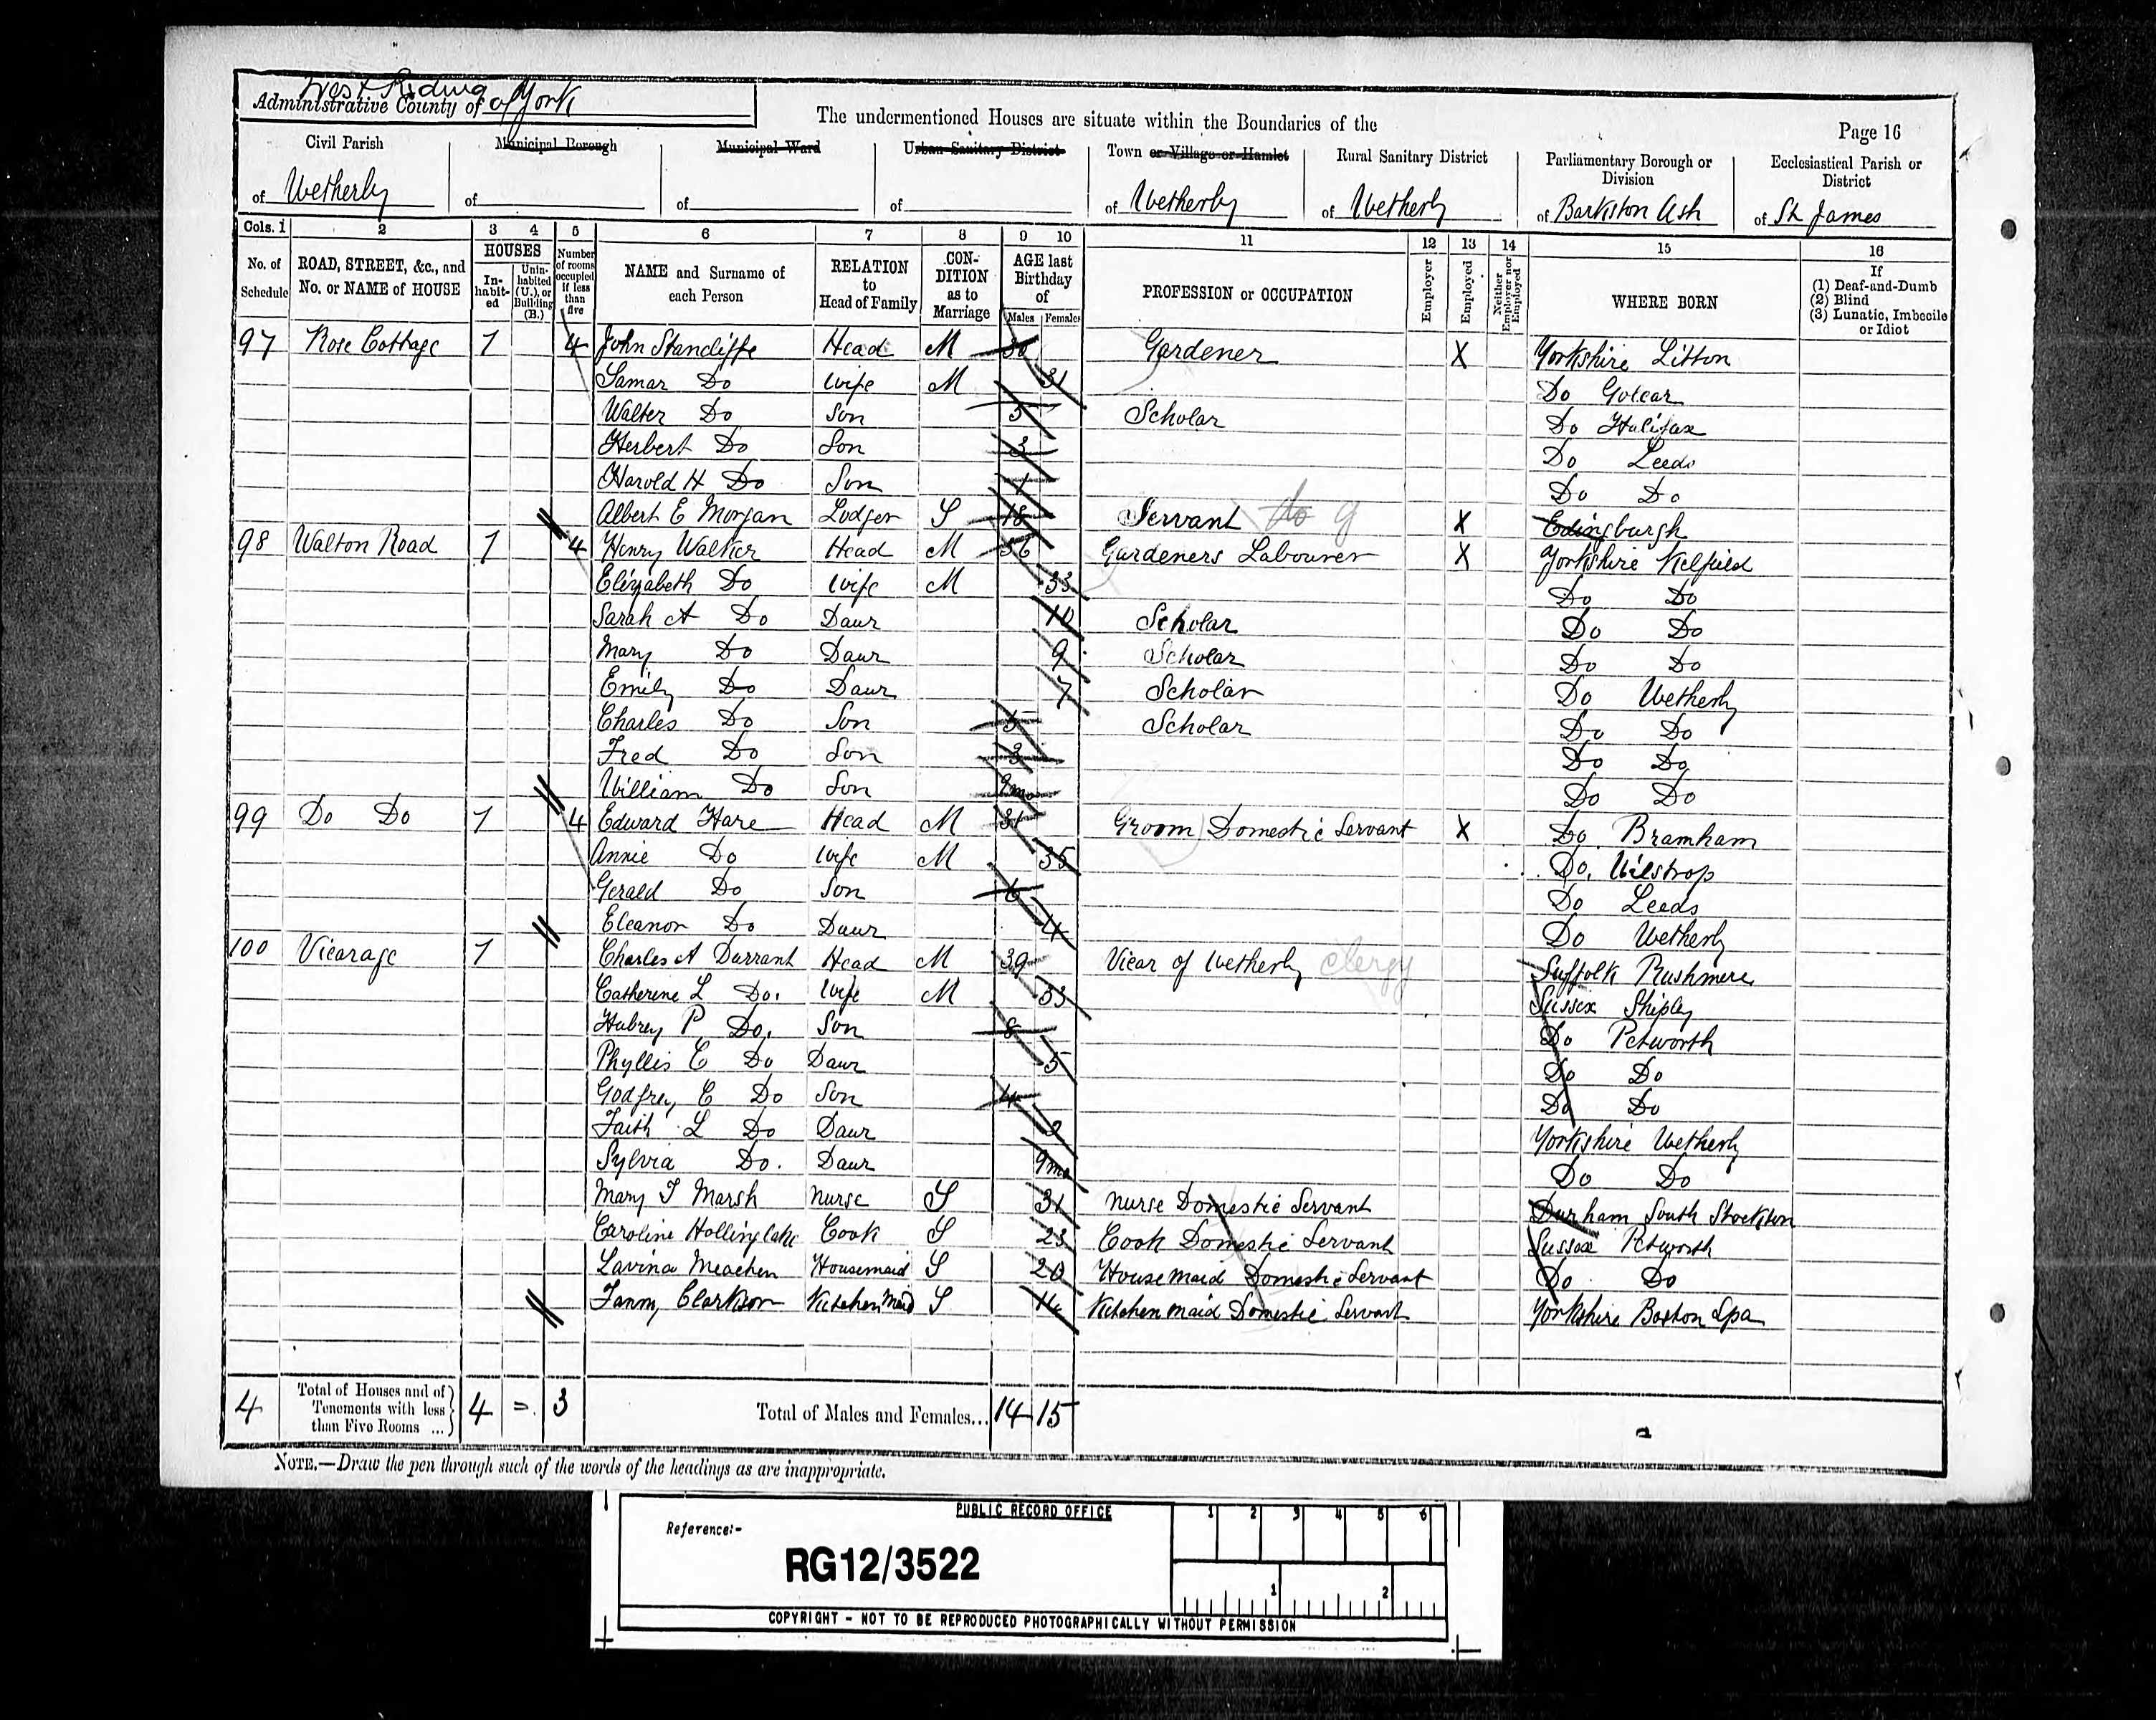 West Riding
Administrative County of of York
The undermentioned Houses are situate within the Boundaries of the
Page 16
Civil Parish
Municipal Borough
Municipal Ward
Urban Sanitary District
Town or Village or Hamlet
Rural Sanitary District
Parliamentary Borough or Division
Ecclesiastical Parish or District
of Wetherby
of
of
of
of Wetherby
of Wetherby
of Barkston Ash
of St James
Cols. 1 2 3 4 5 6 7 8 9 10 11 12 13 14 15 16
No. of Schedule
ROAD, STREET, &c., and No. or NAME of HOUSE
HOUSES
In-habit-ed
Unin-habited (U.), or Building (B.)
Number of rooms occupied if less than five
NAME and Surname of each Person
RELATION to Head of Family
CON-DITION as to Marriage
AGE last Birthday of
Males Females
PROFESSION or OCCUPATION
Employer
Employed
Neither Employer nor Employed
WHERE BORN
If
(1) Deaf-and-Dumb
(2) Blind
(3) Lunatic, Imbecile or Idiot
97 Rose Cottage 1 4 John Stancliffe Head M 30 Gardener X Yorkshire Litton
Tamar Do Wife M 31 Do Golcar
Walter Do Son 5 Scholar Do Halifax
Herbert Do Son 3 Do Leeds
Harold H Do Son 1 Do Do
Albert E Morgan Lodger S 18 Servant do g X Edingburgh
98 Walton Road 1 4 Henry Walker Head M 36 Gardeners Labourer X Yorkshire Kelfield
Elizabeth Do Wife M 33 Do Do
Sarah A Do Daur 10 Scholar Do Do
Mary Do Daur 9 Scholar Do Do
Emily Do Daur 7 Scholar Do Wetherby
Charles Do Son 5 Scholar Do Do
Fred Do Son 3 Do Do
William Do Son 9mo Do Do
99 Do Do 1 4 Edward Hare Head M Groom Domestic Servant X Do Bramham
Annie Do Wife M 35 Do. Wilstrop
Gerald Do Son 6 Do Leeds
Eleanor Do Daur 4 Do Wetherby
100 Vicarage 1 Charles A Durrant Head M 39 Vicar of Wetherby Clergy Suffolk Rushmere
Catherine L Do. Wife M 33 Sussex Shipley
Aubrey P Do. Son 8 Do Petworth
Phyllis C Do Daur 5 Do Do
Godfrey C Do Son 4 Do Do
Faith L Do Daur 2 Yorkshire Wetherby
Sylvia Do. Daur 9mo Do Do
Mary J Marsh Nurse S 31 Nurse Domestic Servant Durham South Stockton
Caroline Hollinglake Cook S 23 Cook Domestic Servant Sussex Petworth
Lavina Meachen Housemaid S 20 Housemaid Domestic Servant Do Do
Fanny Clarkson Kitchen Maid S Kitchenmaid Domestic Servant Yorkshire Boston Spa
4 Total of Houses and of Tenements with less than Five Rooms ... 4 = 3 Total of Males and Females... 14 15
NOTE.—Draw the pen through such of the words of the headings as are inappropriate.
PUBLIC RECORD OFFICE
1 2 3 4 5 6
Reference:-
RG12/3522
1 2
COPYRIGHT - NOT TO BE REPRODUCED PHOTOGRAPHICALLY WITHOUT PERMISSION